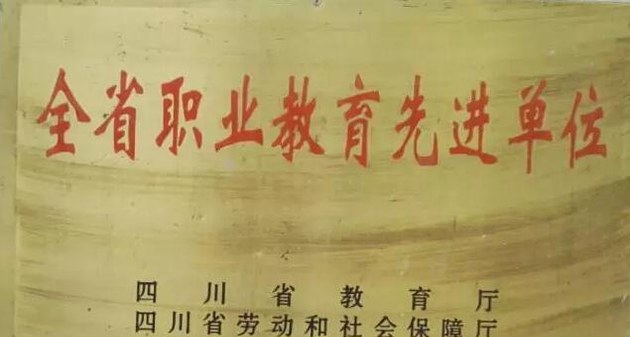 全省职业教育先进单位
四川省教育厅
四川省劳动和社会保障厅